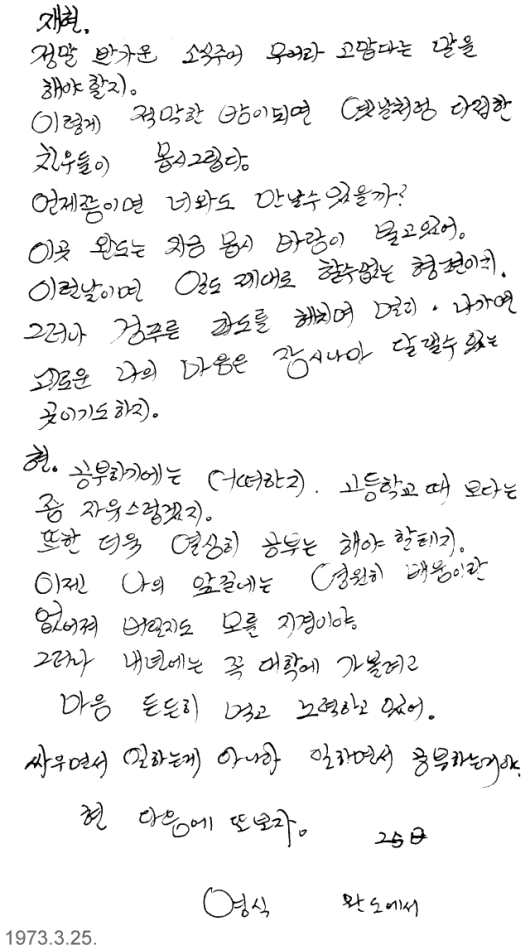 재현.
정말 반가운 소식주어 무어라 고맙다는 말을
해야 할지.
이렇게 적막한 밤이되면 옛날처럼 다정한
친우들이 몹시그립다.
언제쯤이면 너와도 만날수 있을까?
이곳 완도는 지금 몹시 바람이 불고있어.
이런날이면 일도 제대로 할수없는 형편이지.
그러나 검푸른 파도를 헤치며 멀리. 나가면
괴로운 나의 마음은 잠시나마 달랠수 있는
곳이기도하지.
현. 공부하기에는 어떠한지. 고등학교 때 보다는
좀 자유스럽겠지.
또한 더욱 열심히 공부는 해야 할테지.
이젠 나의 앞길에는 영원히 배움이란
없어져 버린지도 모를 지경이야.
그러나 내년에는 꼭 대학에 가볼려고
마음 든든히 먹고 노력하고 있어.
싸우면서 일하는게 아니라 일하면서 공부하는거야.
현 다음에 또보자. 25日
영식 완도에서
1973.3.25.